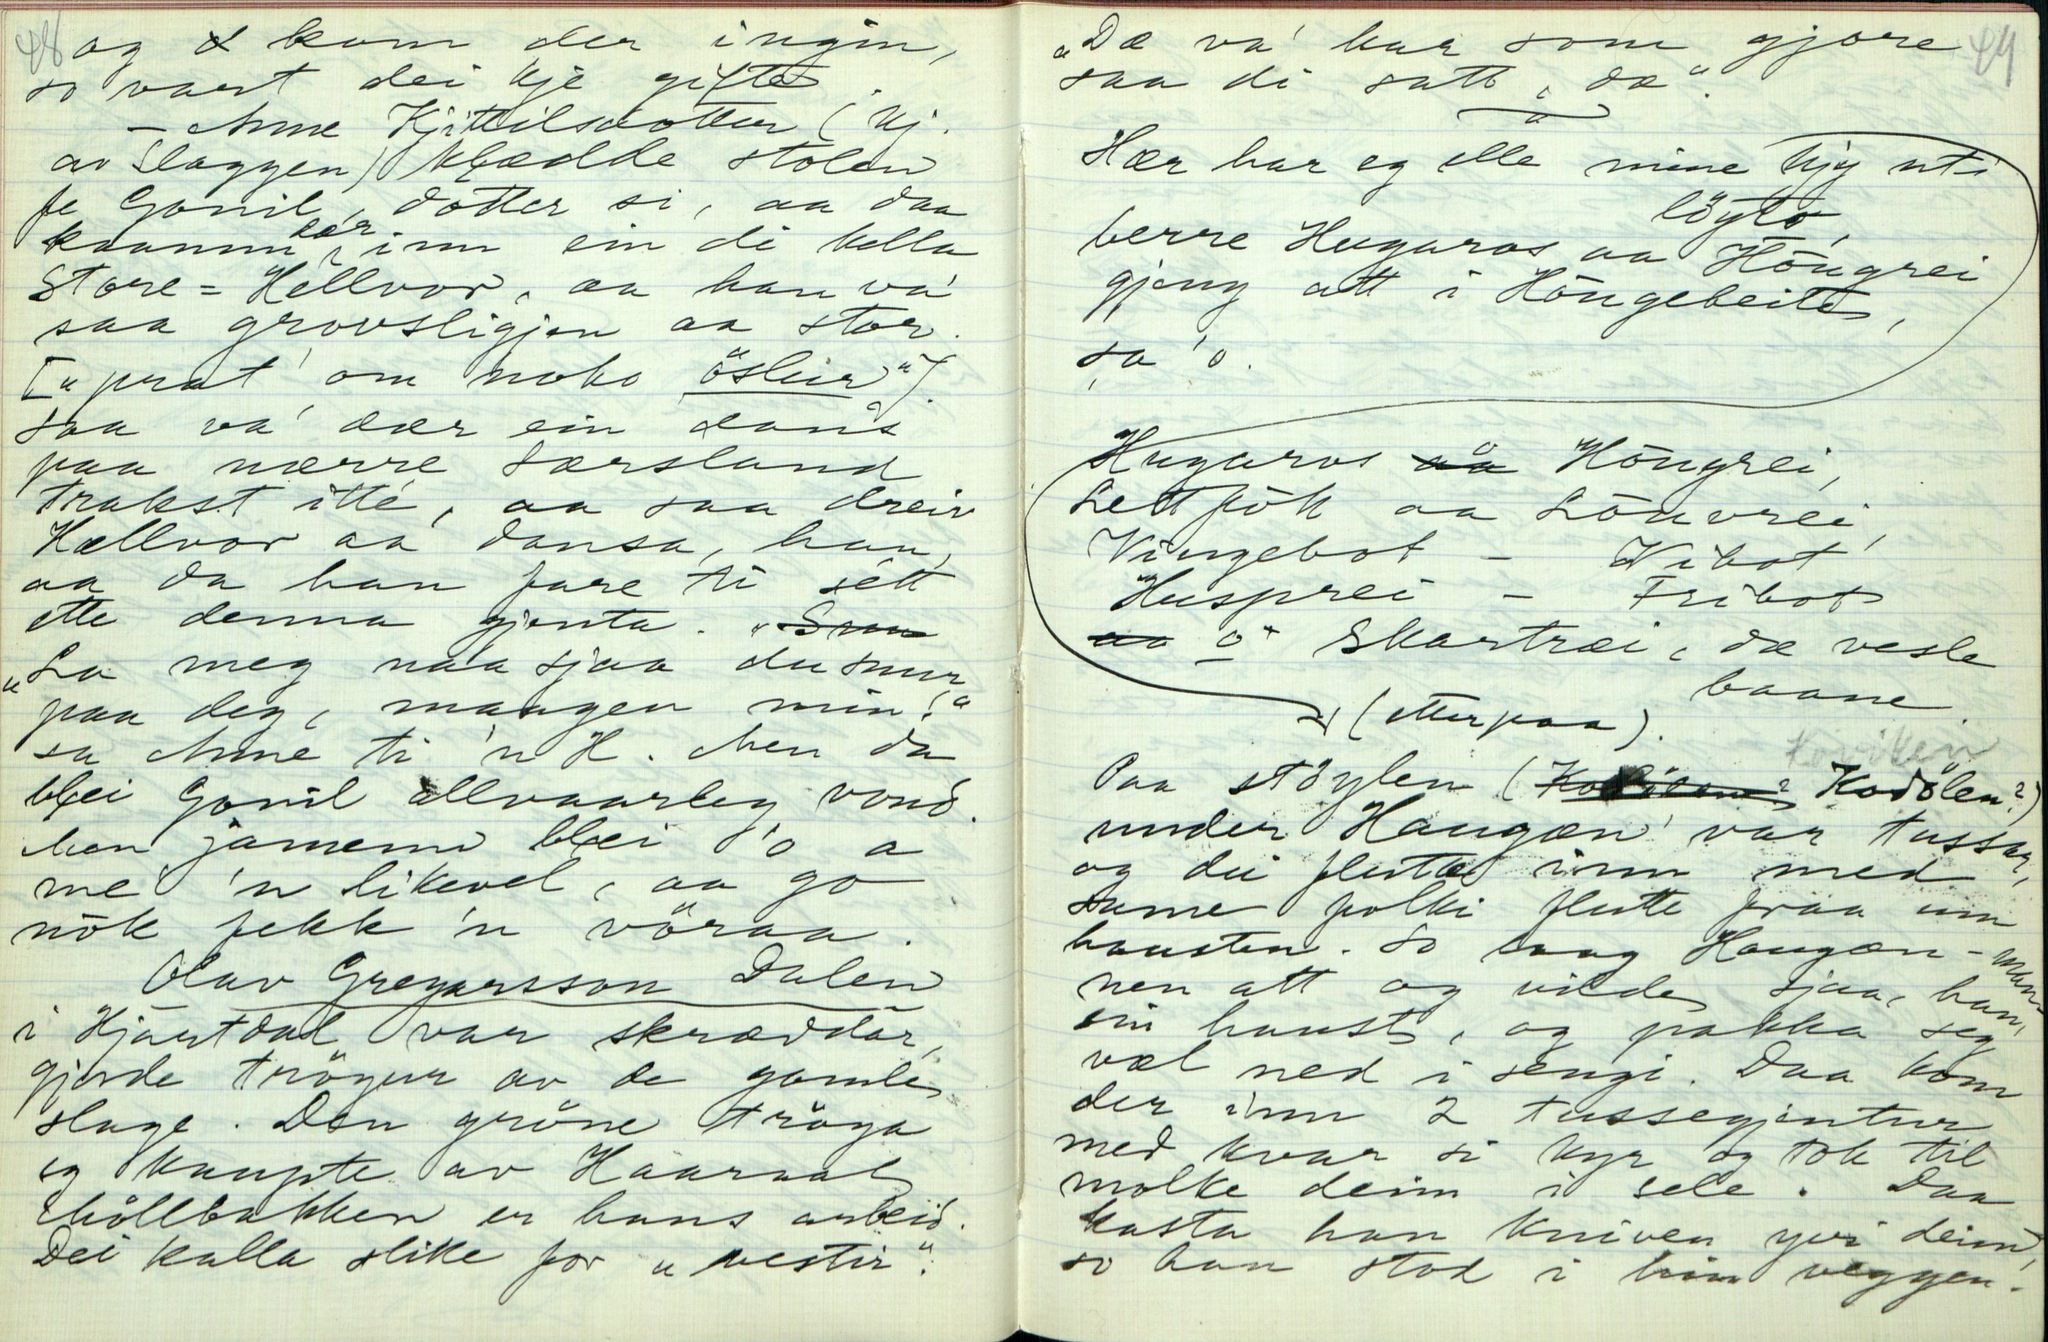 48
og kom der ingin,
so vart dei kje gifte.
– Anne Kjittilsdotter (Kj.
av Slaggen) klædde stolen
fe Gonil, dotter si, aa daa
kaamm dær inn ein di kalla
Store-Hellvor, aa han va'
saa grovsligjen aa stor.
["prat om noko ösleir"].
Saa va' dær ein dans
paa nærre Særsland
trakst itté, aa saa dreiv
Hællvor aa dansa, han,
aa da han fare ti sétt
ette denna gjenta. "Snu
"La meg naa sjaa du snur
paa deg, mangen min!"
sa Anne ti 'n H. Men da
blei Gonil allvaarleg vond.
Men jamenn blei 'o a
me' 'n likevel, aa go
nök fekk 'n vöraa.
Olav Gregarsson Dalen
i Hjartdal var skræddar,
gjorde tröyur av de gamle
slage. Den gröne tröya
eg kaupte av Haaraal
Möllbakken er hans arbeid.
Dei kalla slike for "vestir".
49
"Dæ va' kar som gjore
saa di satt, dæ".
Hær har eg elle mine kjy uti
löyto,
berre Hugaros aa Höngrei
gjeng att i Höngebeite,
sa 'o.
Hugaros aa å Höngrei,
Lettfök aa Lönvrei,
Vingebot – Vibot
Husprei – Fribot
aa o' Skartræi, dæ vesle
baane.
(etterpaa).
Koviken
Paa stöylen ( Kodölen?)
under Haugæn var tussar,
og dei flutte inn med
same folki flutte fraa um
hausten. So laag Haugæn-man-
nen att og vilde sjaa, han,
ein haust, og pakka seg
væl ned i sengi. Daa kom
der inn 2 tussegjentur
med kvar si kyr og tok til
molke deim i sele. Daa
kasta han kniven yvi deim,
so han stod i hin veggen.